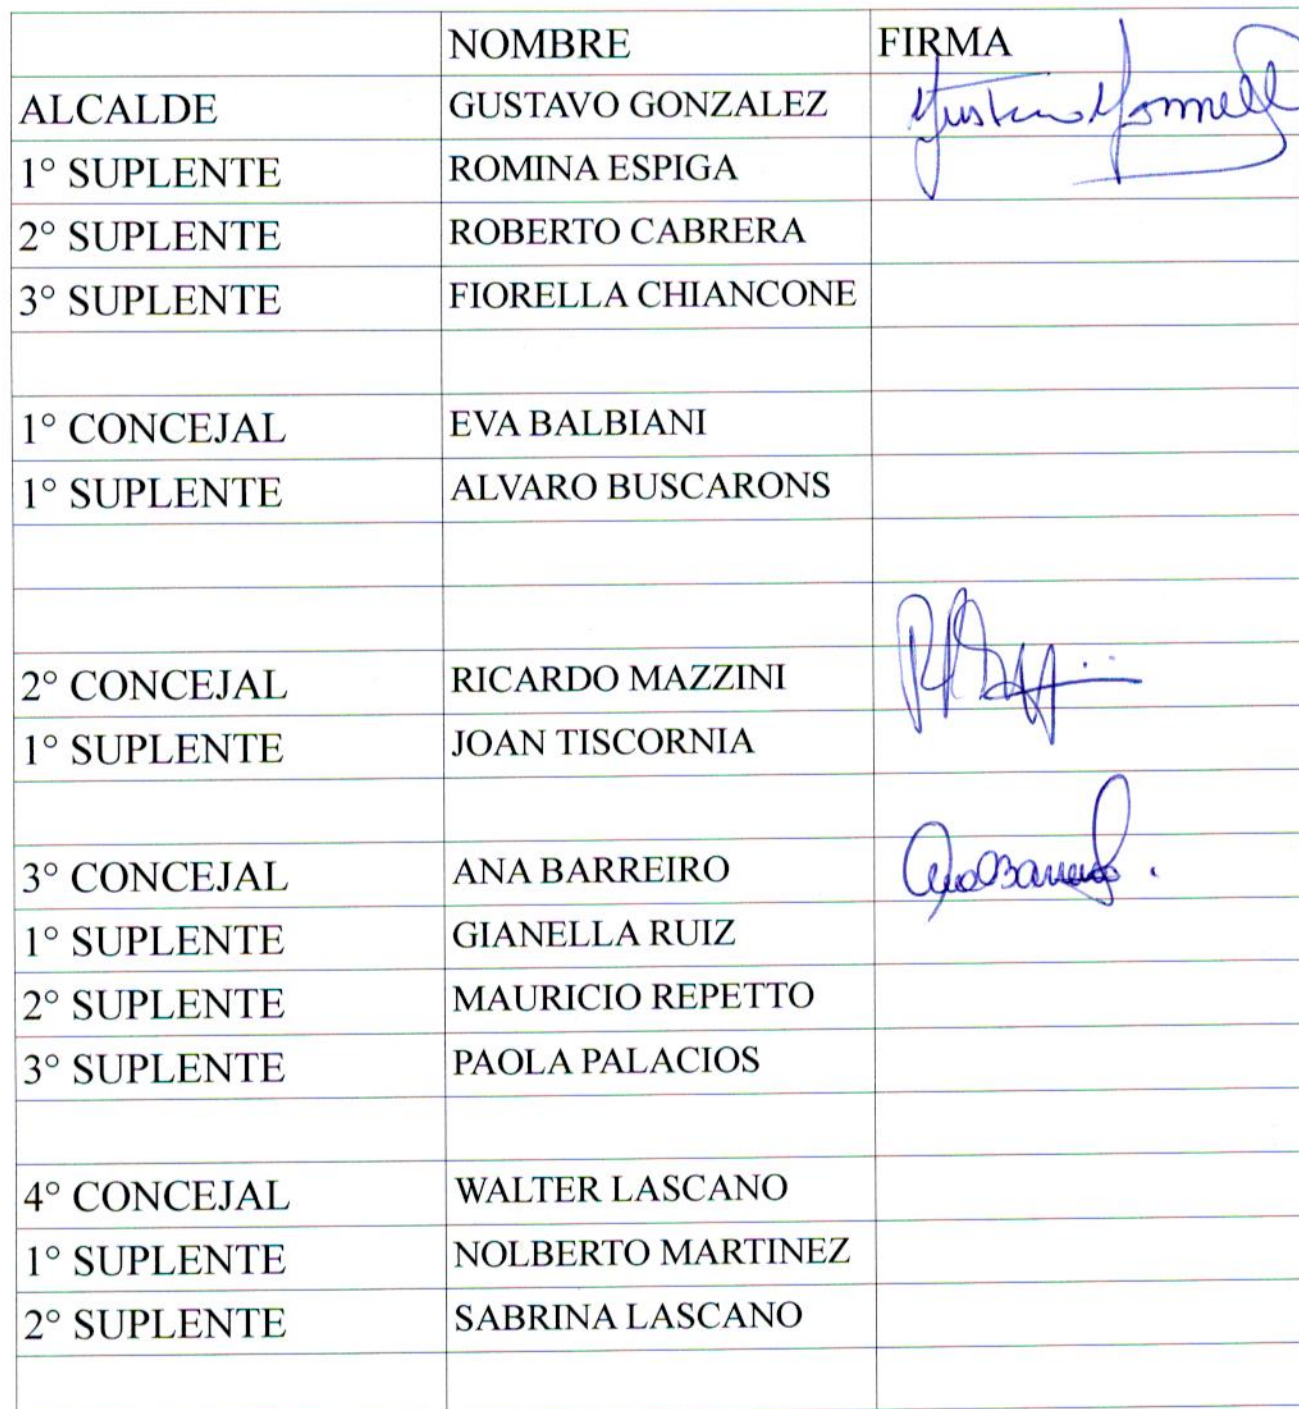 NOMBRE FIRMA
ALCALDE GUSTAVO GONZALEZ Gustavo
1° SUPLENTE ROMINA ESPIGA
2° SUPLENTE ROBERTO CABRERA
3° SUPLENTE FIORELLA CHIANCONE
1° CONCEJAL EVA BALBIANI
1° SUPLENTE ALVARO BUSCARONS
2° CONCEJAL RICARDO MAZZINI
1° SUPLENTE JOAN TISCORNIA
3° CONCEJAL ANA BARREIRO Ana Barreiro
1° SUPLENTE GIANELLA RUIZ
2° SUPLENTE MAURICIO REPETTO
3° SUPLENTE PAOLA PALACIOS
4° CONCEJAL WALTER LASCANO
1° SUPLENTE NOLBERTO MARTINEZ
2° SUPLENTE SABRINA LASCANO